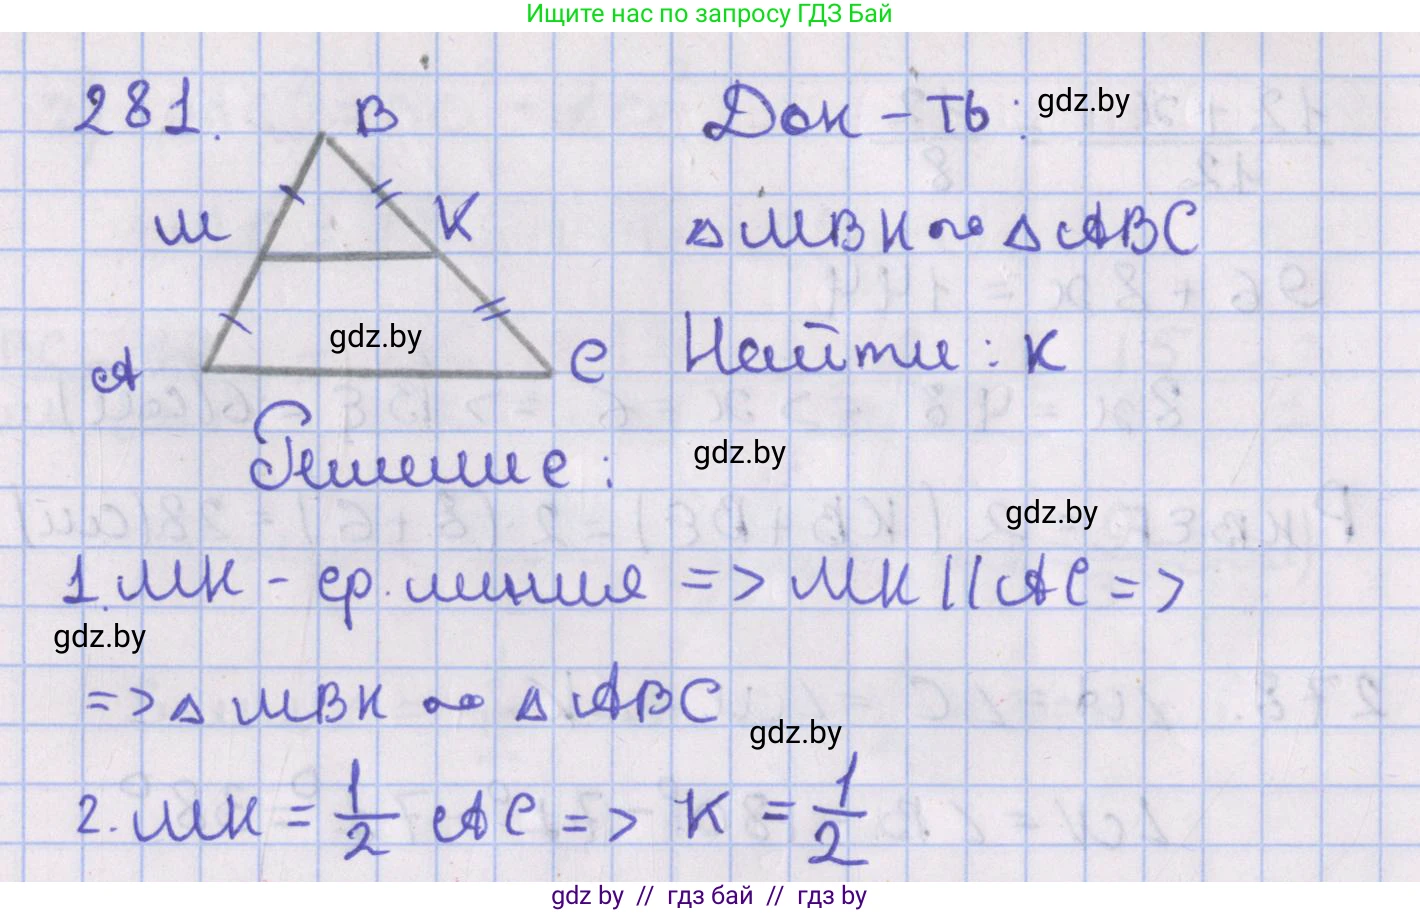 Ищите нас по запросу ГДЗ Бай
281.
B
M
K
A
C
gdz.by
Док-ть:
gdz.by
△MBK ∾ △ABC
Найти: к
Решение:
gdz.by
gdz.by
1. MK - ср. линия => MK || AC =>
gdz.by
=> △MBK ∾ △ABC
gdz.by
2. MK = 1/2 AC => K = 1/2
gdz by // гдз бай // гдз by